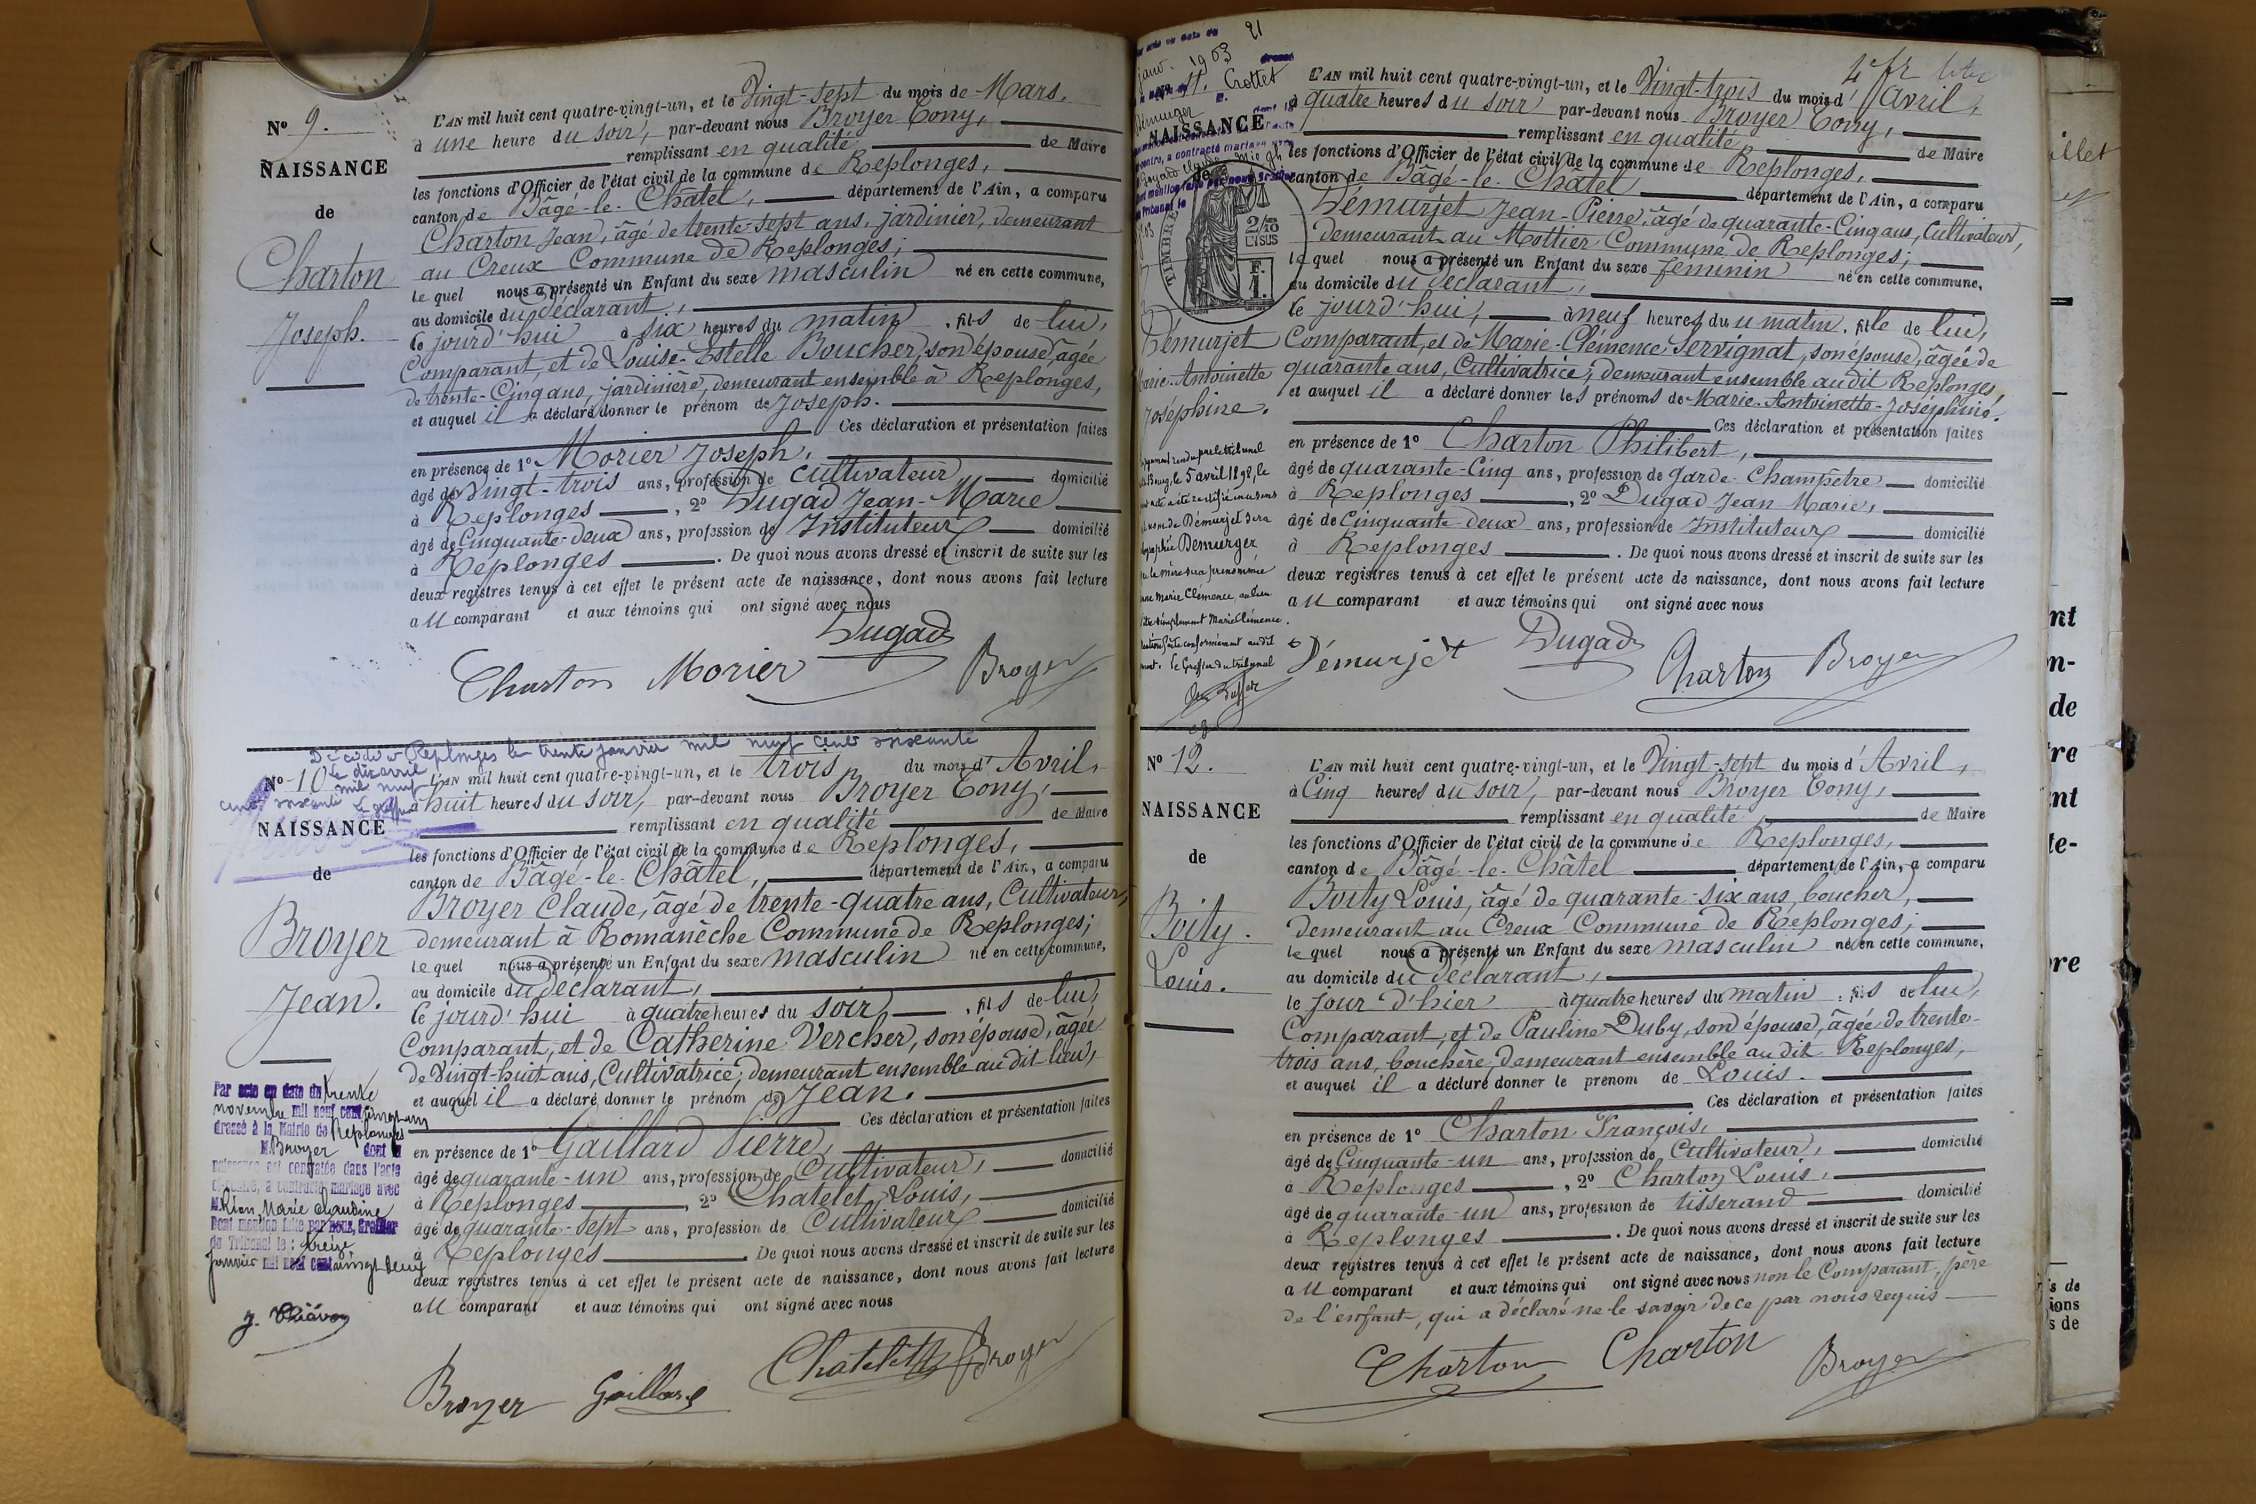 Nº 9.
NAISSANCE
de
Charton
Joseph.
L'AN mil huit cent quatre-vingt-un, et le Vingt-sept du mois de Mars,
à une heure du soir, par-devant nous Broyer Tony,
remplissant en qualité de Maire
les fonctions d'Officier de l'état civil de la commune de Replonges,
canton de Bâgé-le-Châtel, département de l'Ain, a comparu
Charton Jean, âgé de trente-sept ans, jardinier, demeurant
au Creux Commune de Replonges;
lequel nous a présenté un Enfant du sexe masculin né en cette commune,
au domicile du déclarant,
le jourd'hui à six heures du matin, fils de lui,
Comparant, et de Louise-Estelle Boucher, son épouse, âgée
de trente-Cinq ans, jardinière, demeurant ensemble à Replonges,
et auquel il a déclaré donner le prénom de Joseph.
Ces déclaration et présentation faites
en présence de 1º Morier Joseph,
âgé de Vingt-trois ans, profession de cultivateur domicilié
à Replonges, 2º Dugad Jean-Marie
âgé de Cinquante-deux ans, profession de Instituteur domicilié
à Replonges. De quoi nous avons dressé et inscrit de suite sur les
deux registres tenus à cet effet le présent acte de naissance, dont nous avons fait lecture
au comparant et aux témoins qui ont signé avec nous
Dugad
Charton Morier Broyer
Décédé à Replonges le trente janvier mil neuf cent soixante
Le dix avril
mil neuf
cent soixante Le greffier
Nº 10
NAISSANCE
de
Broyer
Jean.
L'AN mil huit cent quatre-vingt-un, et le trois du mois d'Avril,
à huit heures du soir, par-devant nous Broyer Tony,
remplissant en qualité de Maire
les fonctions d'Officier de l'état civil de la commune de Replonges,
canton de Bâgé-le-Châtel, département de l'Ain, a comparu
Broyer Claude, âgé de trente-quatre ans, Cultivateur,
demeurant à Romanèche Commune de Replonges;
lequel nous a présenté un Enfant du sexe masculin né en cette commune,
au domicile du déclarant,
le jourd'hui à quatre heures du soir, fils de lui,
Comparant, et de Catherine Vercher, son épouse, âgée
de Vingt-huit ans, Cultivatrice, demeurant ensemble au dit lieu,
et auquel il a déclaré donner le prénom de Jean.
Ces déclaration et présentation faites
en présence de 1º Gaillard Pierre,
âgé de quarante-un ans, profession de Cultivateur, domicilié
à Replonges, 2º Chatelet Louis,
âgé de quarante-sept ans, profession de Cultivateur domicilié
à Replonges De quoi nous avons dressé et inscrit de suite sur les
deux registres tenus à cet effet le présent acte de naissance, dont nous avons fait lecture
au comparant et aux témoins qui ont signé avec nous
Broyer Gaillard Chatelet Broyer
Par acte en date du trente
novembre mil neuf cent vingt un
dressé à la Mairie de Replonges
M. Broyer dont la
naissance est constatée dans l'acte
ci-contre, a contracté mariage avec
M. Rion Marie Claudine
Dont mention faite par nous, Greffier
du Tribunal le: treize
janvier mil neuf cent vingt deux
par acte en date du 21
janv. 1903
Crottet
Démurger
NAISSANCE
ci-contre, a contracté mariage avec
Goyard Claude
Dont mention faite par nous Greffier
du Tribunal le
de
TIMBRE
2/10 EN SUS
F. 1.
Démurjet
Marie-Antoinette
Joséphine.
jugement rendu par le tribunal
de Bourg, le 5 avril 1898, le
acte a été rectifié en ce sens
nom de Démurjet sera
orthographié Demurger
la mère sera prénommée
Marie Clémence, au lieu
simplement Marie Clémence.
faite conformément au dit
Le Greffier du tribunal
4e fr
L'AN mil huit cent quatre-vingt-un, et le Vingt-trois du mois d'Avril,
à quatre heures du soir par-devant nous Broyer Tony,
remplissant en qualité de Maire
les fonctions d'Officier de l'état civil de la commune de Replonges,
canton de Bâgé-le-Châtel département de l'Ain, a comparu
Démurjet Jean-Pierre, âgé de quarante-Cinq ans, Cultivateur,
demeurant au Mottier Commune de Replonges;
lequel nous a présenté un Enfant du sexe féminin né en cette commune,
au domicile du déclarant,
le jourd'hui, à neuf heures du matin, fille de lui,
Comparant, et de Marie-Clémence Servignat, son épouse, âgée de
quarante ans, Cultivatrice, demeurant ensemble au dit Replonges,
et auquel il a déclaré donner les prénoms de Marie-Antoinette-Joséphine.
Ces déclaration et présentation faites
en présence de 1º Charton Philibert,
âgé de quarante-Cinq ans, profession de garde-Champêtre domicilié
à Replonges, 2º Dugad Jean Marie,
âgé de Cinquante-deux ans, profession de Instituteur domicilié
à Replonges. De quoi nous avons dressé et inscrit de suite sur les
deux registres tenus à cet effet le présent acte de naissance, dont nous avons fait lecture
au comparant et aux témoins qui ont signé avec nous
Démurjet Dugad Charton Broyer
Nº 12.
NAISSANCE
de
Boity.
Louis.
L'AN mil huit cent quatre-vingt-un, et le Vingt-sept du mois d'Avril,
à Cinq heures du soir, par-devant nous Broyer Tony,
remplissant en qualité de Maire
les fonctions d'Officier de l'état civil de la commune de Replonges,
canton de Bâgé-le-Châtel département de l'Ain, a comparu
Boity Louis, âgé de quarante-six ans, boucher,
demeurant au Creux Commune de Replonges;
lequel nous a présenté un Enfant du sexe masculin né en cette commune,
au domicile du déclarant,
le jour d'hier à quatre heures du matin, fils de lui,
Comparant, et de Pauline Duby, son épouse, âgée de trente-
trois ans, bouchère, demeurant ensemble au dit Replonges,
et auquel il a déclaré donner le prénom de Louis.
Ces déclaration et présentation faites
en présence de 1º Charton François,
âgé de Cinquante-un ans, profession de Cultivateur, domicilié
à Replonges, 2º Charton Louis,
âgé de quarante-un ans, profession de tisserand domicilié
à Replonges. De quoi nous avons dressé et inscrit de suite sur les
deux registres tenus à cet effet le présent acte de naissance, dont nous avons fait lecture
au comparant et aux témoins qui ont signé avec nous non le Comparant, père
de l'enfant, qui a déclaré ne le savoir de ce par nous requis
Charton Charton Broyer